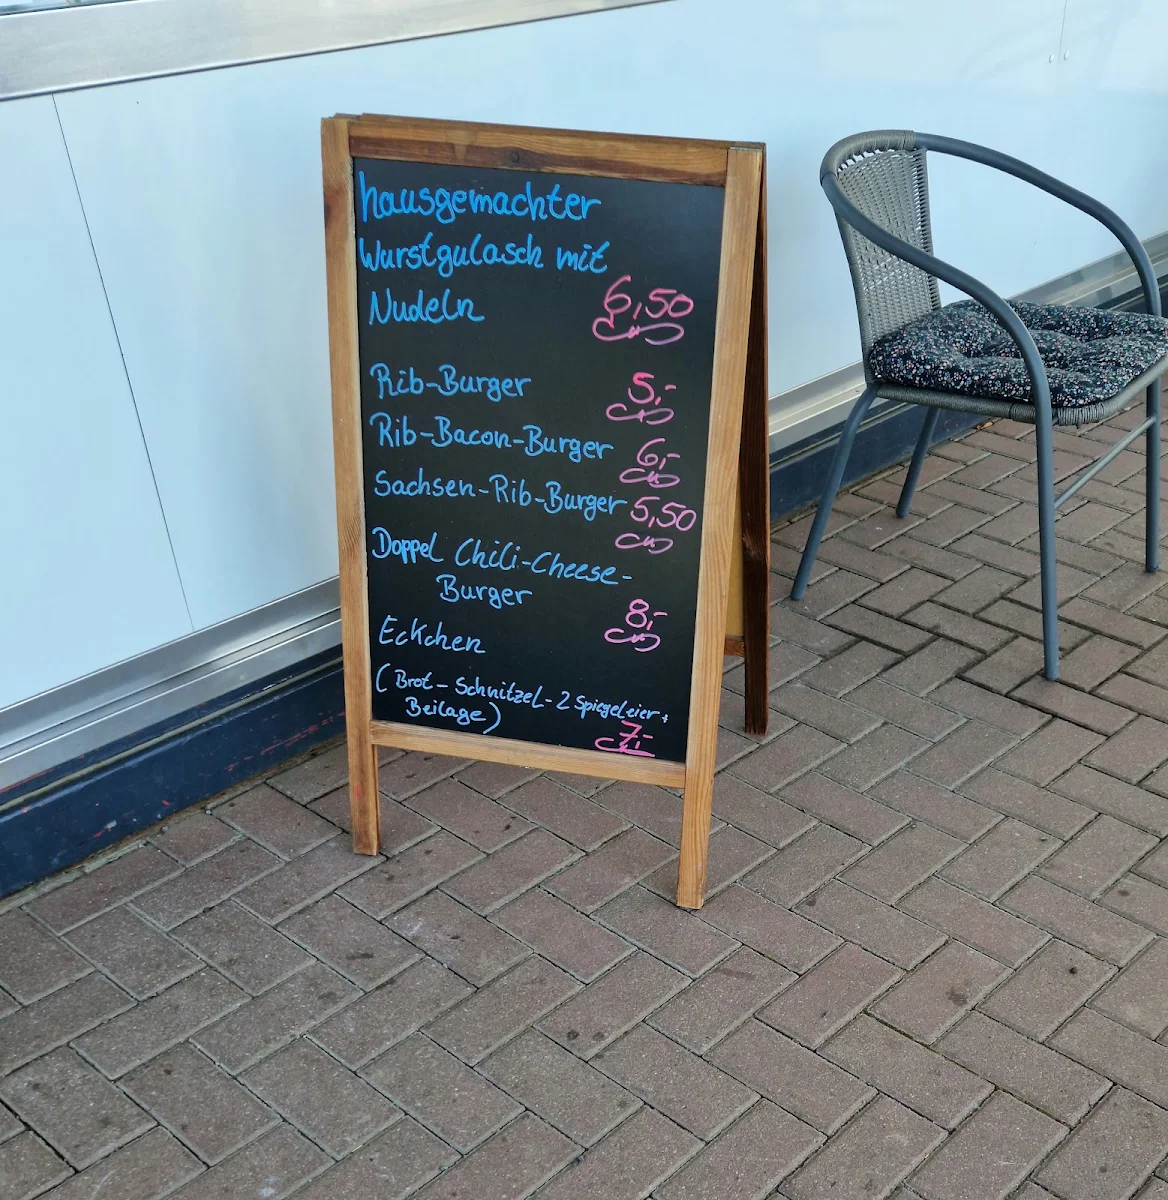 hausgemachter
Wurstgulasch mit
Nudeln 6,50
Rib-Burger 5,-
Rib-Bacon-Burger 6,-
Sachsen-Rib-Burger 5,50
Doppel Chili-Cheese-
Burger 8,-
Eckchen
(Brot - Schnitzel - 2 Spiegeleier +
Beilage) 7,-